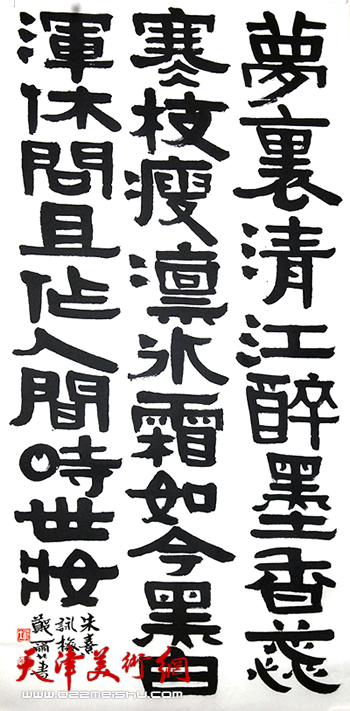 夢裏清江醉墨香蕊
寒枝瘦凛冰霜如今黑白
渾休問且作人間時世妝
朱熹
詠梅
書
天津美術網
www.022meishu.com